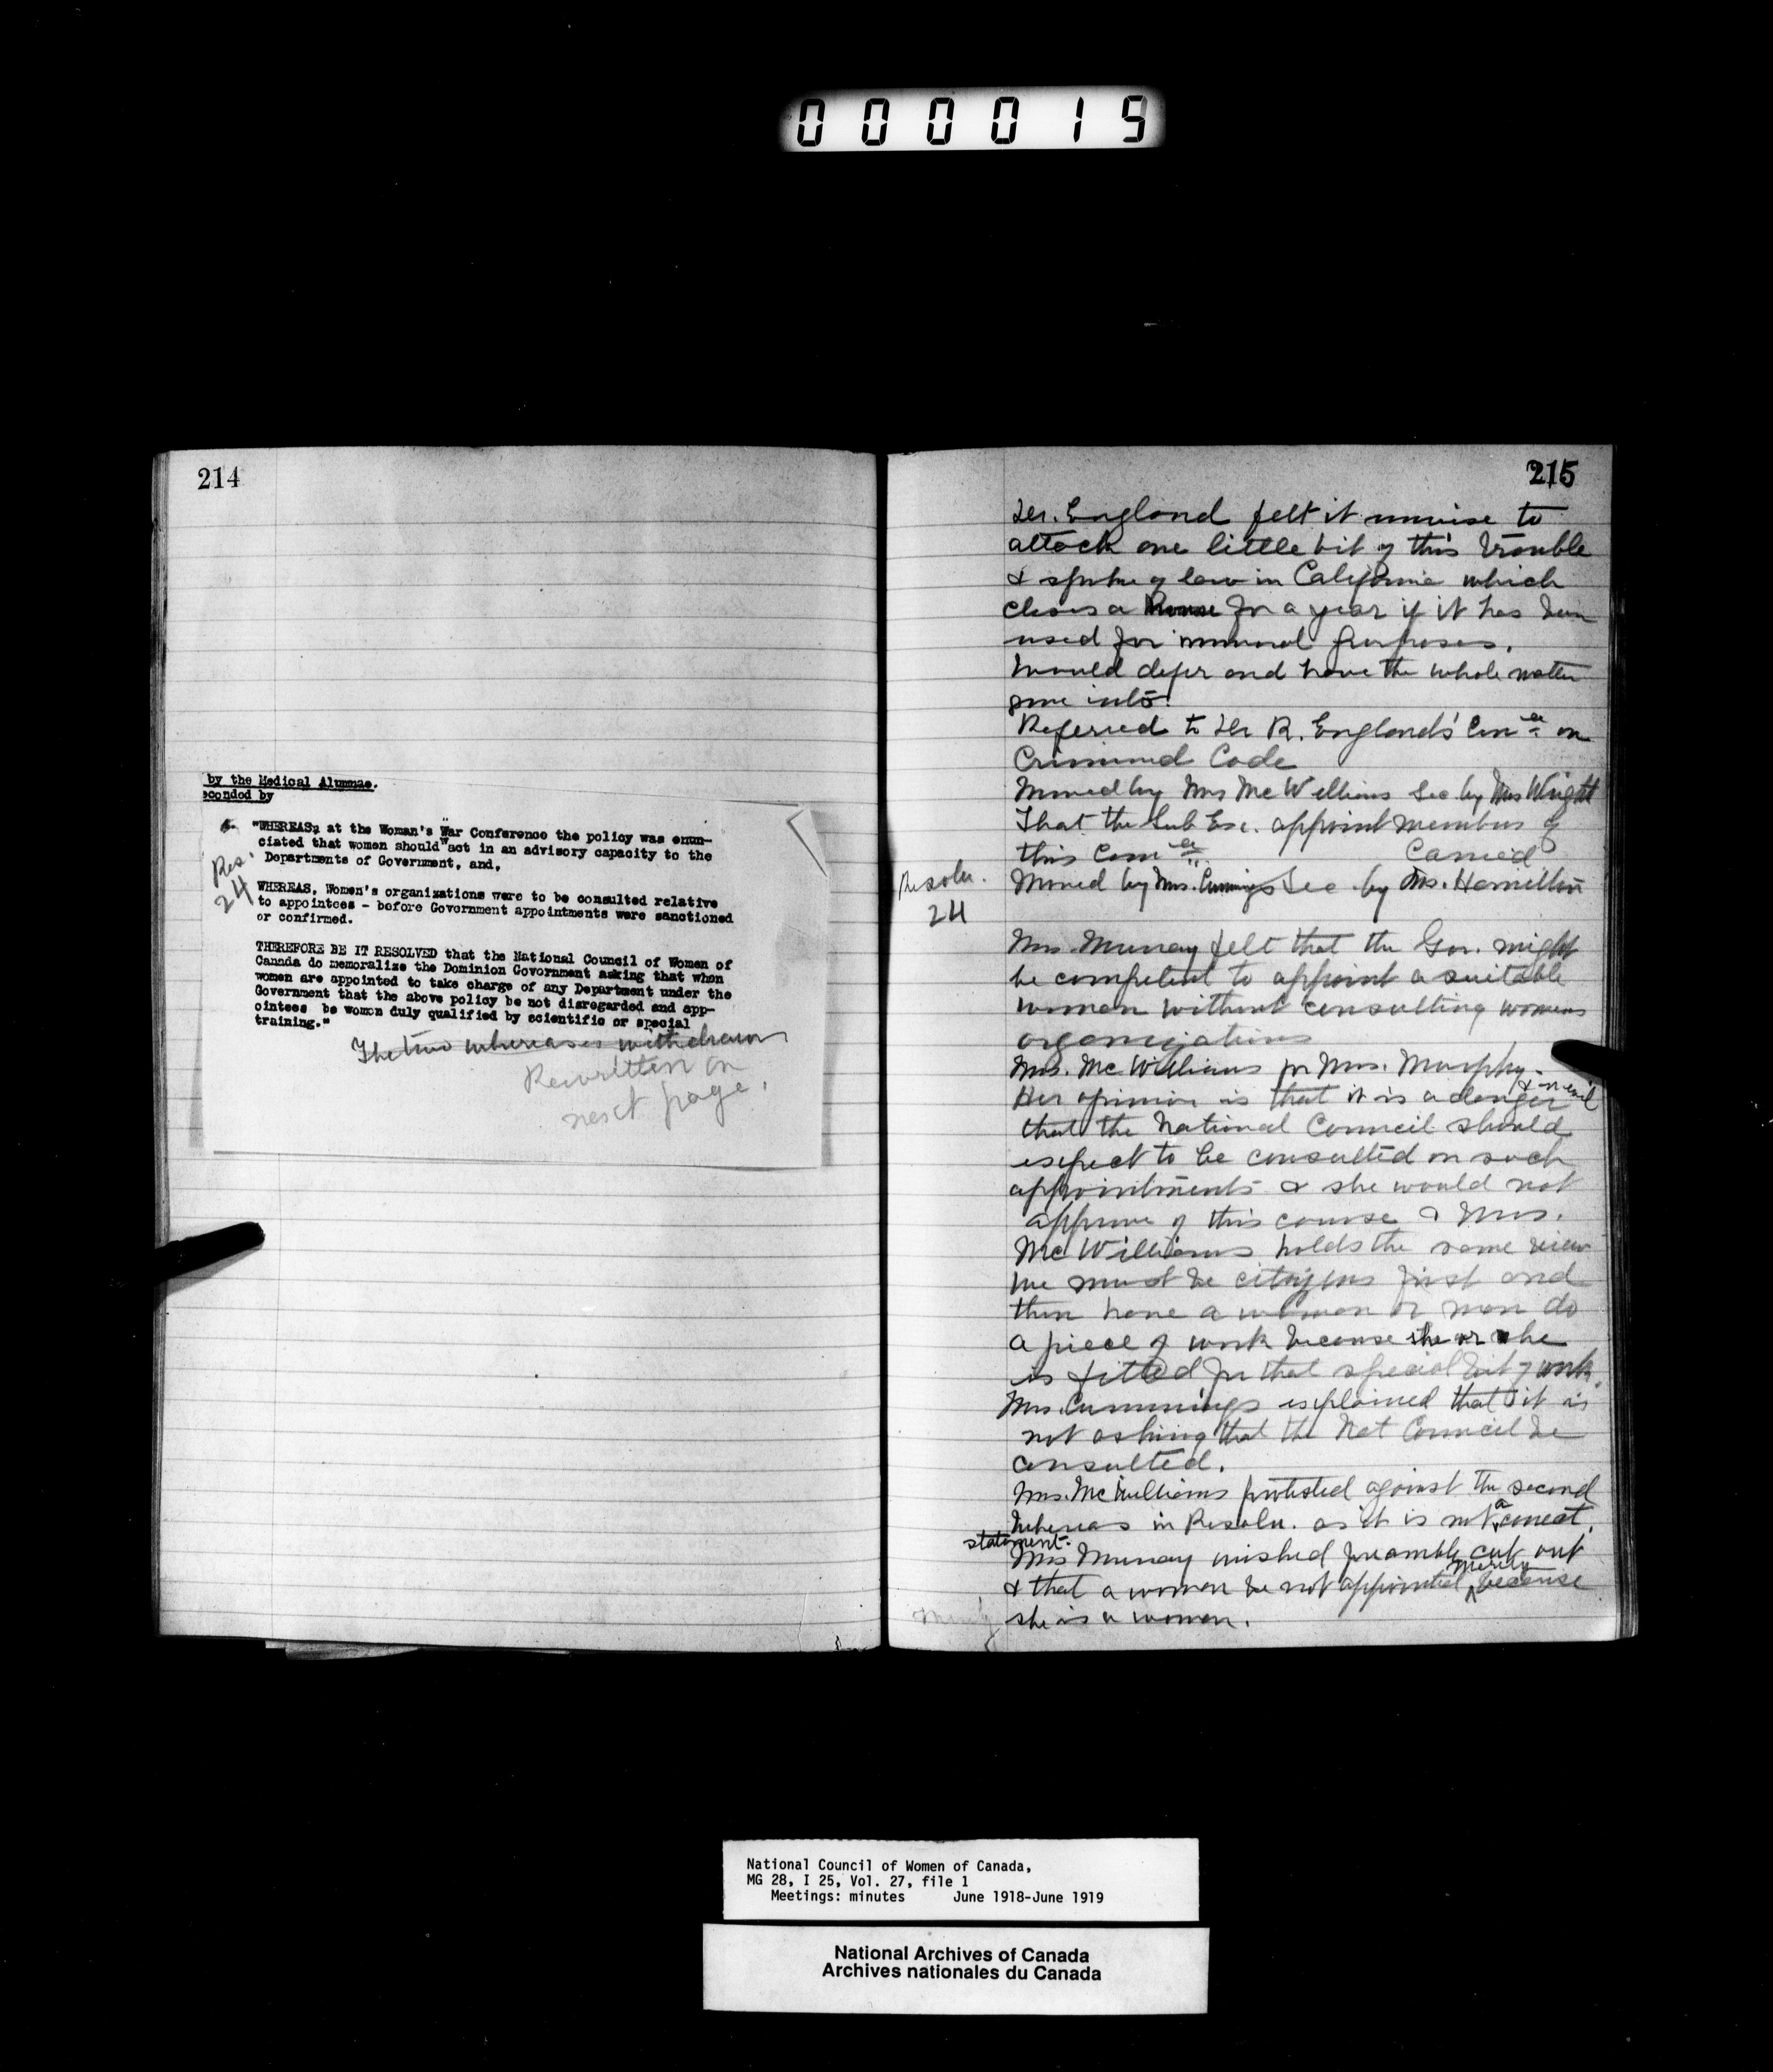 000019
214
by the Medical Alumnae.
econded by
"WHEREAS, at the Woman's War Conference the policy was enun-
ciated that women should act in an advisory capacity to the
Departments of Government, and,
Res.
24
WHEREAS, Women's organizations were to be consulted relative
to appointees - before Government appointments were sanctioned
or confirmed.
THEREFORE BE IT RESOLVED that the National Council of Women of
Canada do memoralize the Dominion Government asking that when
women are appointed to take charge of any Department under the
Government that the above policy be not disregarded and app-
ointees be women duly qualified by scientific or special
training."
The two whereases withdrawn
Rewritten on
next page.
215
Dr. England felt it unwise to
attack one little bit of this trouble
& spoke of law in California which
closes a house for a year if it has been
used for immoral purposes.
Would defer and have the whole matter
gone into.
Referred to Dr R. England's Com ee on
Criminal Code
Moved by Mrs McWilliams Sec by Mrs Wright
That the Sub Exc. appoint members of
this Com ee. Carried
Resolu.
24
Moved by Mrs. Cummings Sec by Ms. Hamilton
Mrs. Murray felt that the Gov. might
be competent to appoint a suitable
woman without consulting womens
organizations
Mrs. McWilliams for Mrs. Murphy.
Her opinion is that it is a danger &
that the National Council should
expect to be consulted on such
appointments & she would not
approve of this course & Mrs.
McWilliams holds the same view
we must be citizens first and
then have a woman or man do
a piece of work because she or he
is fitted for that special bit of work.
Mrs. Cummings explained that it is
not asking that the Nat Council be
consulted.
Mrs. McWilliams protested against the second
Whereas in Resolu. as it is not a correct
statement.
Mrs Murray wished preamble cut out
& that a woman be not appointed merely because
she is a woman.
National Council of Women of Canada,
MG 28, I 25, Vol. 27, file 1
Meetings: minutes June 1918-June 1919
National Archives of Canada
Archives nationales du Canada